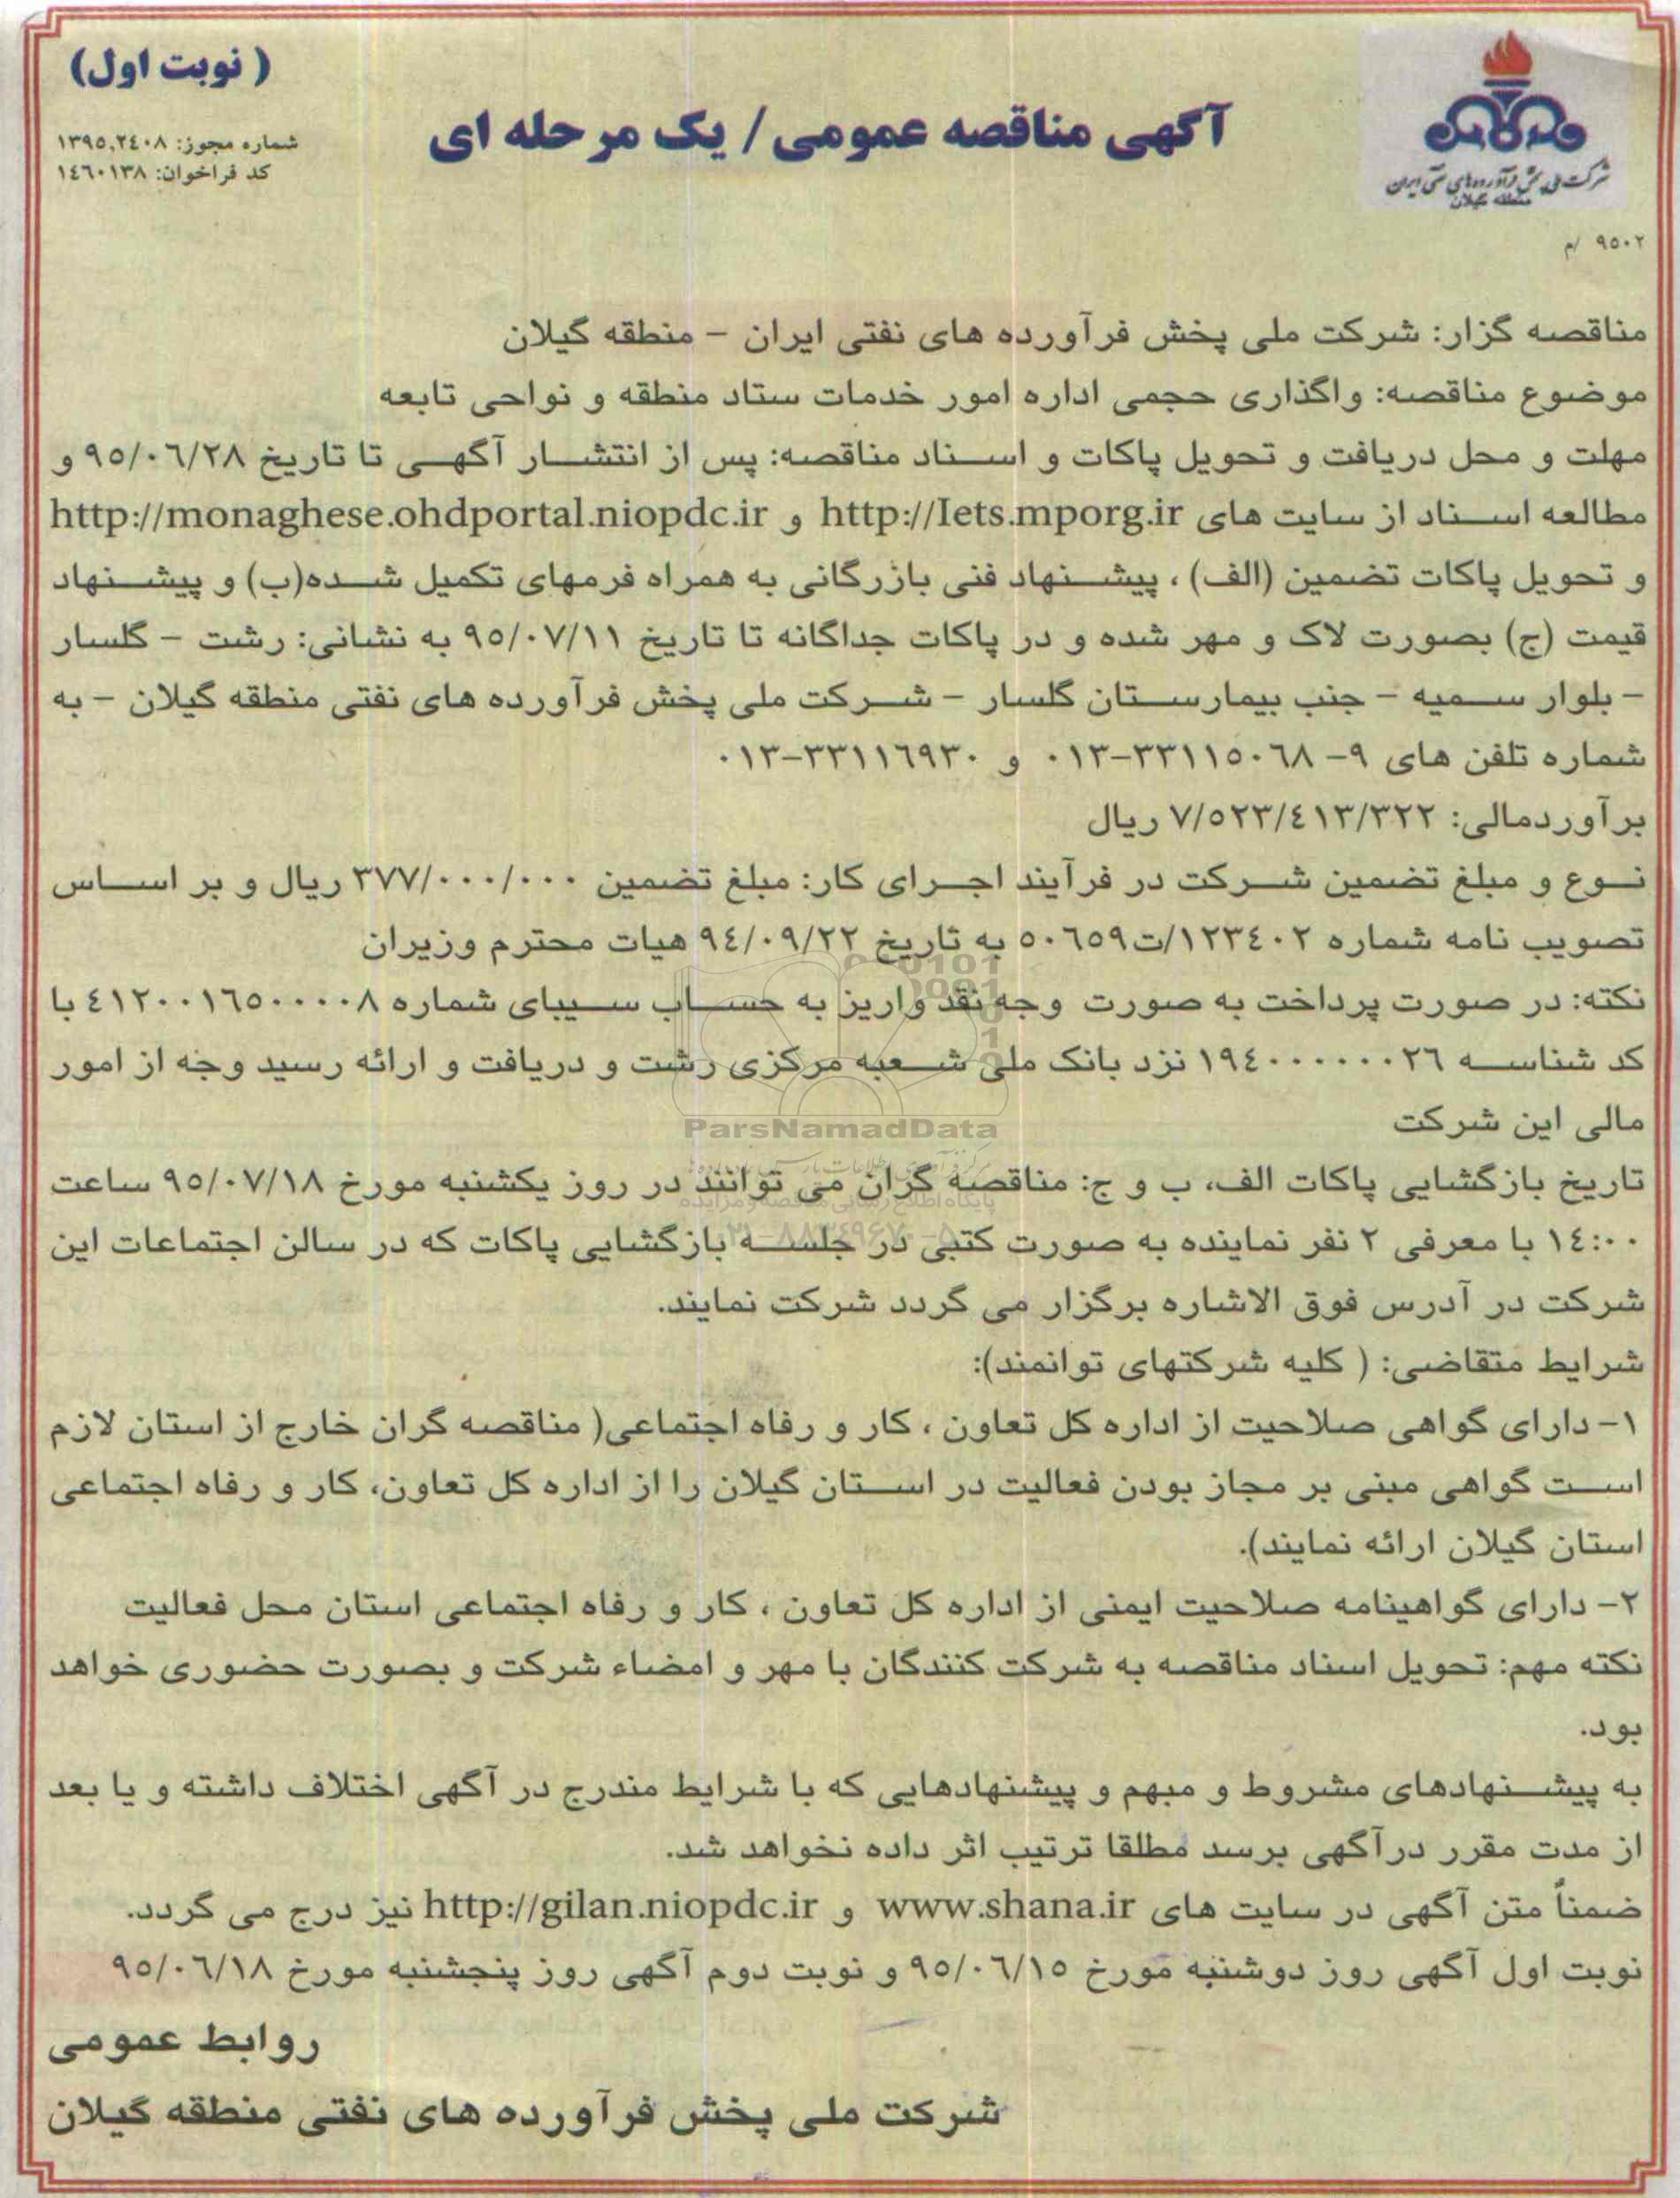 ( نوبت اول)
شماره مجوز: ١٣٩٥,٢٤٠٨
کد فراخوان: ١٤٦٠١٣٨
آگهی مناقصه عمومی / یک مرحله ای
شرکت ملی پخش فرآورده‌های نفتی ایران
منطقه گیلان
٩٥٠٢ /م
مناقصه گزار: شرکت ملی پخش فرآورده های نفتی ایران – منطقه گیلان
موضوع مناقصه: واگذاری حجمی اداره امور خدمات ستاد منطقه و نواحی تابعه
مهلت و محل دریافت و تحویل پاکات و اسناد مناقصه: پس از انتشار آگهی تا تاریخ ٩٥/٠٦/٢٨ و
مطالعه اسناد از سایت های http://Iets.mporg.ir و http://monaghese.ohdportal.niopdc.ir
و تحویل پاکات تضمین (الف) ، پیشنهاد فنی بازرگانی به همراه فرمهای تکمیل شده(ب) و پیشنهاد
قیمت (ج) بصورت لاک و مهر شده و در پاکات جداگانه تا تاریخ ٩٥/٠٧/١١ به نشانی: رشت – گلسار
– بلوار سمیه – جنب بیمارستان گلسار – شرکت ملی پخش فرآورده های نفتی منطقه گیلان – به
شماره تلفن های ٩– ٣٣١١٥٠٦٨–٠١٣ و ٣٣١١٦٩٣٠–٠١٣
برآوردمالی: ٧/٥٢٣/٤١٣/٣٢٢ ریال
نوع و مبلغ تضمین شرکت در فرآیند اجرای کار: مبلغ تضمین ٣٧٧/٠٠٠/٠٠٠ ریال و بر اساس
تصویب نامه شماره ١٢٣٤٠٢/ت٥٠٦٥٩ به تاریخ ٩٤/٠٩/٢٢ هیات محترم وزیران
نکته: در صورت پرداخت به صورت وجه نقد واریز به حساب سیبای شماره ٤١٢٠٠١٦٥٠٠٠٠٠٨ با
کد شناسه ١٩٤٠٠٠٠٠٠٠٢٦ نزد بانک ملی شعبه مرکزی رشت و دریافت و ارائه رسید وجه از امور
مالی این شرکت
ParsNamadData
تاریخ بازگشایی پاکات الف، ب و ج: مناقصه گران می توانند در روز یکشنبه مورخ ٩٥/٠٧/١٨ ساعت
پایگاه اطلاع رسانی مناقصه و مزایده
١٤:٠٠ با معرفی ٢ نفر نماینده به صورت کتبی در جلسه بازگشایی پاکات که در سالن اجتماعات این
شرکت در آدرس فوق الاشاره برگزار می گردد شرکت نمایند.
شرایط متقاضی: ( کلیه شرکتهای توانمند):
١– دارای گواهی صلاحیت از اداره کل تعاون ، کار و رفاه اجتماعی( مناقصه گران خارج از استان لازم
است گواهی مبنی بر مجاز بودن فعالیت در استان گیلان را از اداره کل تعاون، کار و رفاه اجتماعی
استان گیلان ارائه نمایند).
٢– دارای گواهینامه صلاحیت ایمنی از اداره کل تعاون ، کار و رفاه اجتماعی استان محل فعالیت
نکته مهم: تحویل اسناد مناقصه به شرکت کنندگان با مهر و امضاء شرکت و بصورت حضوری خواهد
بود.
به پیشنهادهای مشروط و مبهم و پیشنهادهایی که با شرایط مندرج در آگهی اختلاف داشته و یا بعد
از مدت مقرر درآگهی برسد مطلقا ترتیب اثر داده نخواهد شد.
ضمناً متن آگهی در سایت های www.shana.ir و http://gilan.niopdc.ir نیز درج می گردد.
نوبت اول آگهی روز دوشنبه مورخ ٩٥/٠٦/١٥ و نوبت دوم آگهی روز پنجشنبه مورخ ٩٥/٠٦/١٨
روابط عمومی
شرکت ملی پخش فرآورده های نفتی منطقه گیلان